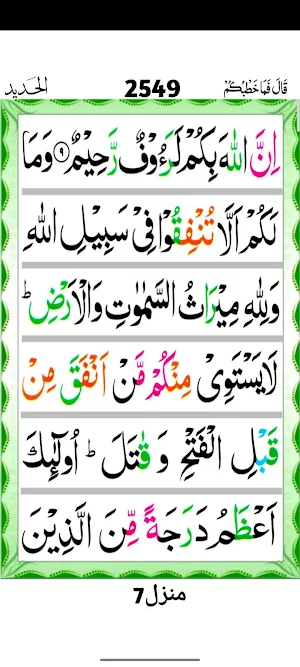 قَالَ فَمَا خَطْبُكُمْ 2549 الحديد
اِنَّ اللّٰهَ بِكُمْ لَرَءُوْفٌ رَّحِيْمٌ ﴿۹﴾ وَمَا
لَكُمْ اَلَّا تُنْفِقُوْا فِىْ سَبِيْلِ اللّٰهِ
وَلِلّٰهِ مِيْرَاثُ السَّمٰوٰتِ وَالْاَرْضِ ؕ
لَا يَسْتَوِىْ مِنْكُمْ مَّنْ اَنْفَقَ مِنْ
قَبْلِ الْفَتْحِ وَ قٰتَلَ ؕ اُولٰٓئِكَ
اَعْظَمُ دَرَجَةً مِّنَ الَّذِيْنَ
منزل7